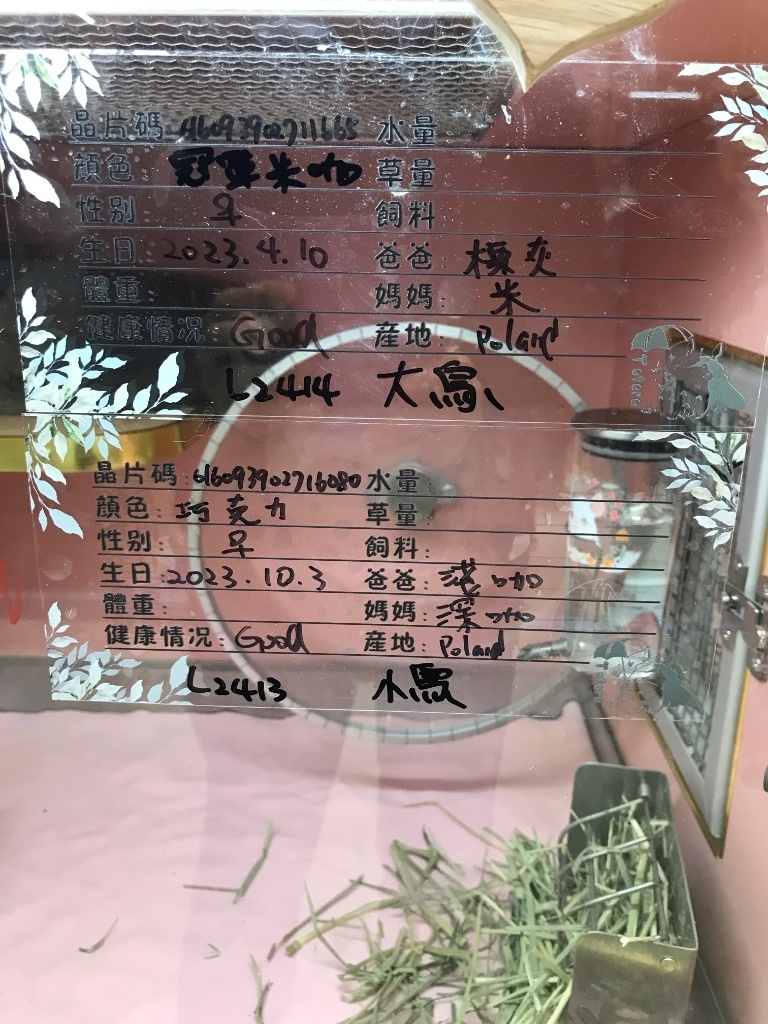 晶片碼: 616093902711665 水量:
顏色: 冠軍米咖 草量:
性別: 우 飼料:
生日: 2023.4.10 爸爸: 標灰
體重: 媽媽: 米
健康情況: Good 産地: Poland
L2414 大
晶片碼: 616093902716080 水量:
顏色: 巧克力 草量:
性別: 우 飼料:
生日: 2023.10.3 爸爸: 咖
體重: 媽媽: 深咖
健康情況: Good 産地: Poland
L2413 小